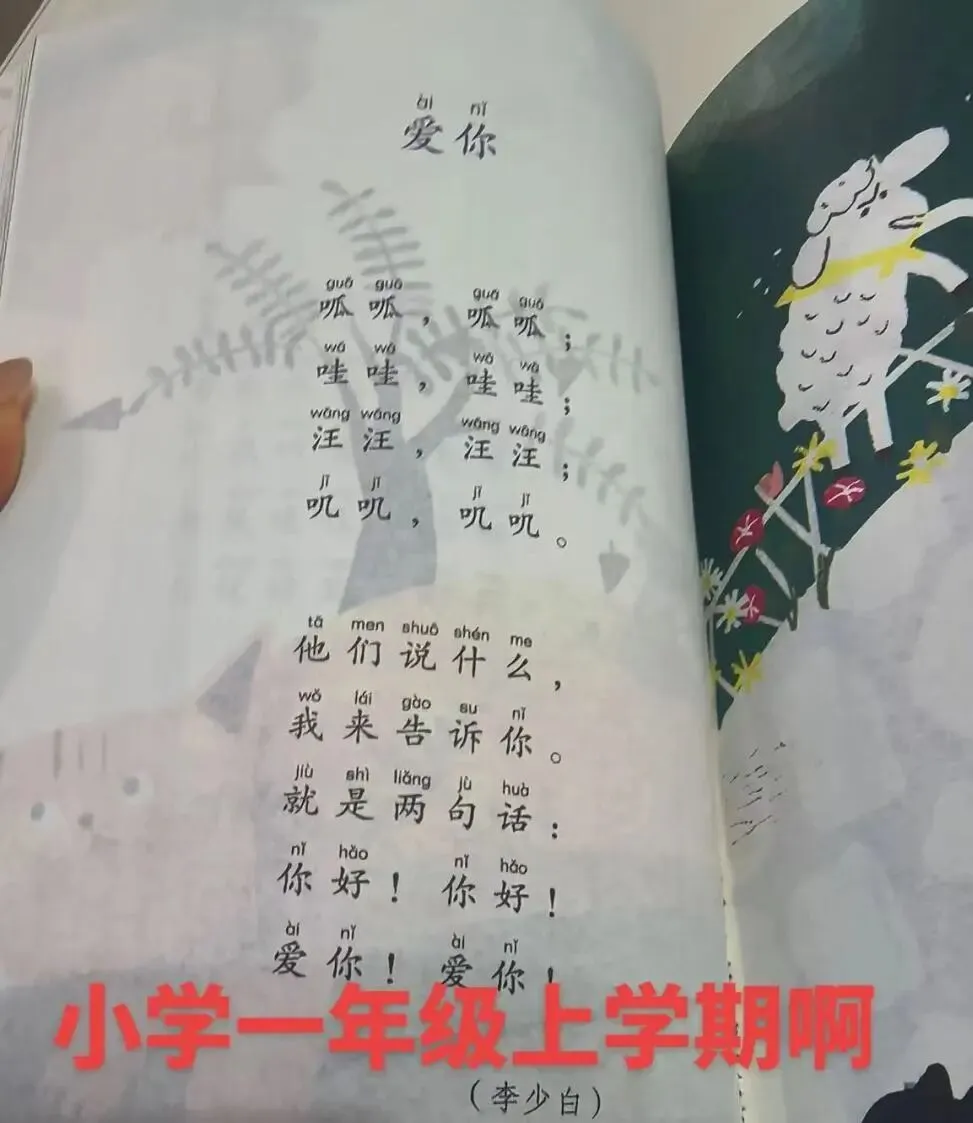 ài nǐ
爱你
guā guā guā guā
呱呱，呱呱；
wā wā wā wā
哇哇，哇哇；
wāng wāng wāng wāng
汪汪，汪汪；
jī jī jī jī
叽叽，叽叽。
tā men shuō shén me
他们说什么，
wǒ lái gào su nǐ
我来告诉你。
jiù shì liǎng jù huà
就是两句话：
nǐ hǎo nǐ hǎo
你好！你好！
ài nǐ ài nǐ
爱你！爱你！
小学一年级上学期啊
（李少白）